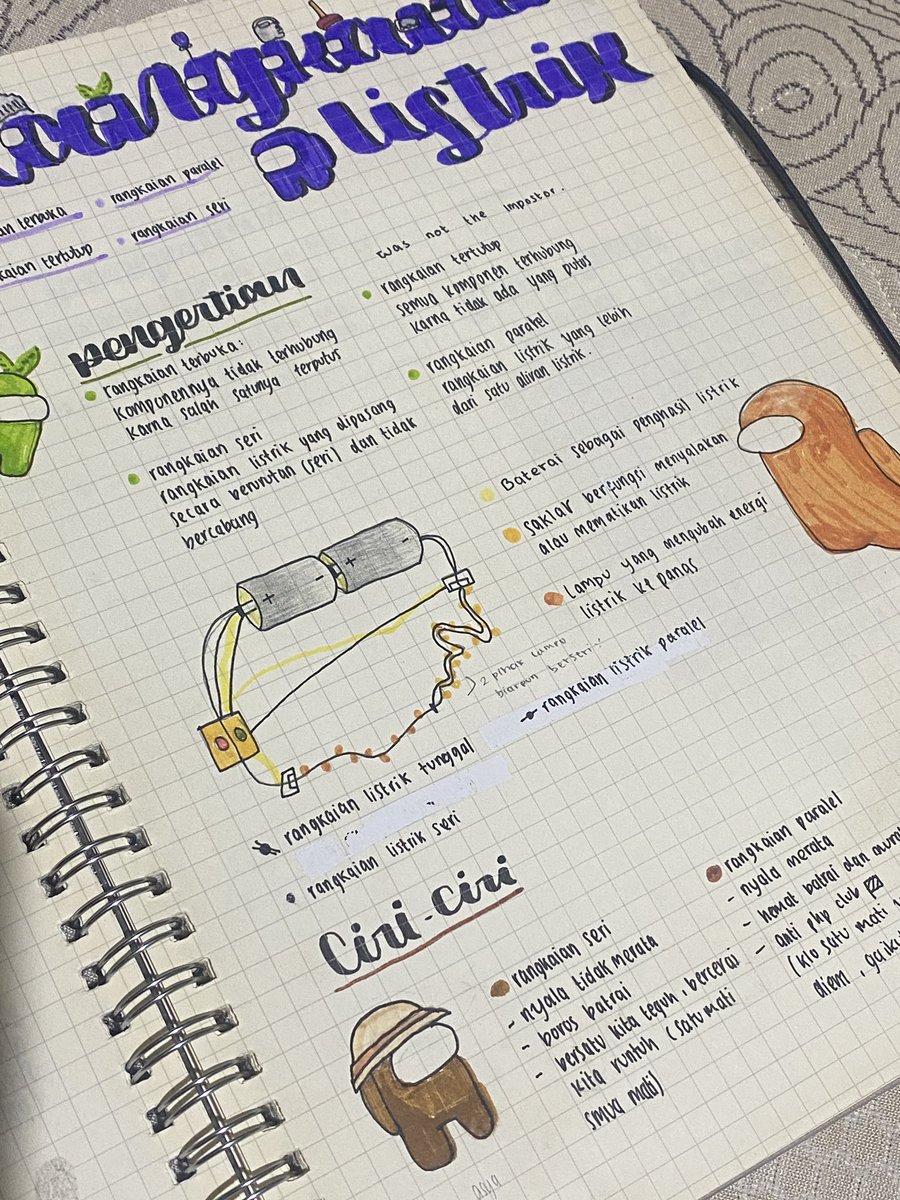 listrik
rangkaian paralel
terbuka
rangkaian seri
tertutup
was not the impostor.
pengertian
rangkaian terbuka:
komponennya tidak terhubung
karna salah satunya terputus
rangkaian seri
rangkaian listrik yang dipasang
secara berurutan (seri) dan tidak
bercabang
rangkaian tertutup
semua komponen terhubung
karna tidak ada yang putus
rangkaian paralel
rangkaian listrik yang lebih
dari satu aliran listrik.
Baterai sebagai penghasil listrik
saklar berfungsi menyalakan
atau mematikan listrik
Lampu yang mengubah energi
listrik ke panas
+ - + -
rangkaian listrik paralel
rangkaian listrik tunggal
rangkaian listrik seri
Ciri-ciri
rangkaian seri
- nyala tidak merata
- boros batrai
- bersatu kita teguh, bercerai
kita runtuh (satu mati
smua mati)
rangkaian paralel
- nyala merata
- hemat batrai dan
- anti php club
(klo satu mati
diem,